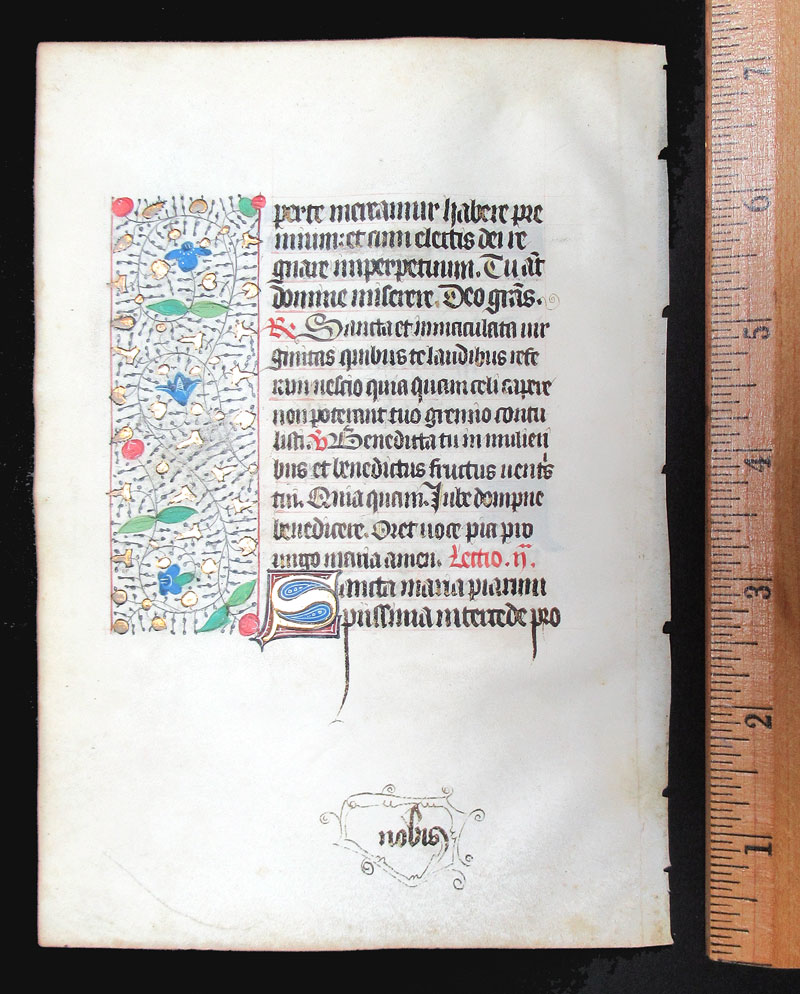 per te mereamur habere pre
mium: et cum electis dei re
gnare inperpetuum. Tu aūt
domine miserere. Deo grās.
R. Sancta et inmaculata uir
ginitas quibus te laudibus refe
ram nescio quia quem celi capere
non poterant tuo gremio contu
listi. V Benedicta tu in mulieri
bus et benedictus fructus uentris
tui. Quia quem. Jube dompne
benedicere. Oret uoce pia pro
uirgo maria amen. Lectio. ij.
Sancta maria piarum
piissima intercede pro
nobis
7
6
5
4
3
2
1